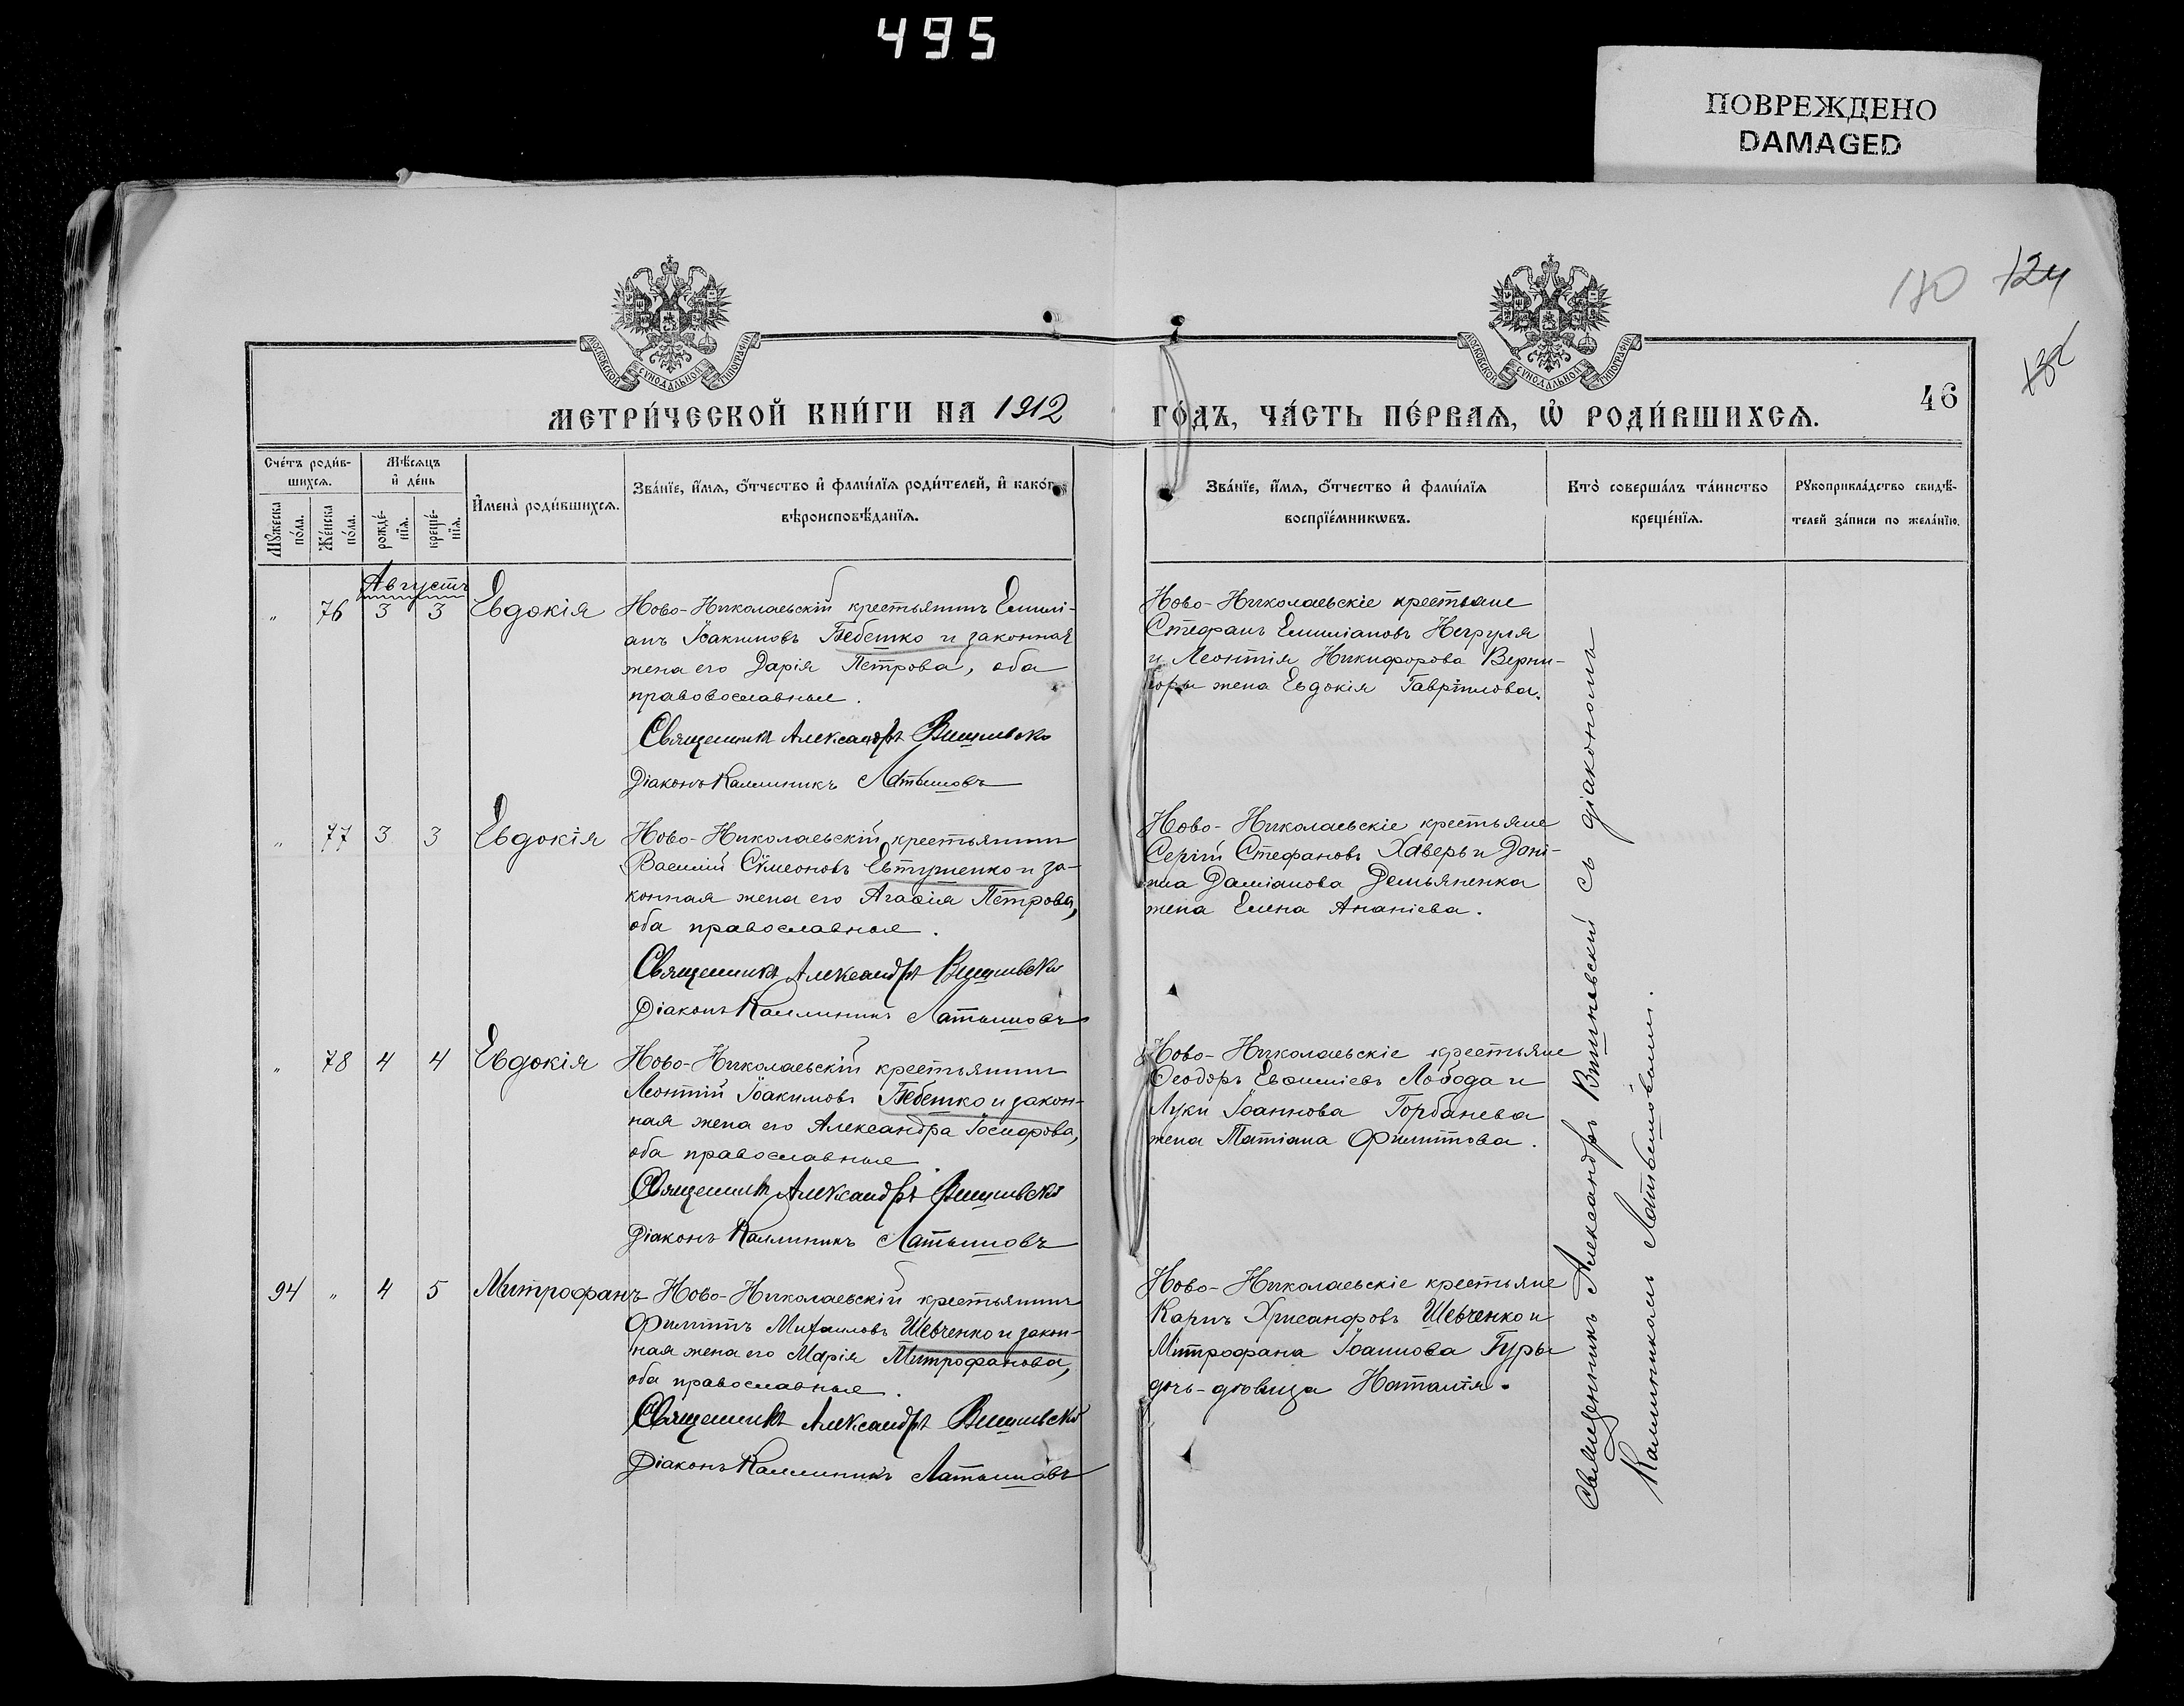 495
ПОВРЕЖДЕНО
DAMAGED
124
46
МЕТРИ́ЧЕСКОЙ КНИ́ГИ НА 1912 ГО́ДЪ, ЧА́СТЬ ПЕ́РВАѦ, Ѡ҆ РОДИ́ВШИХСѦ.
МОСКОВСКОЙ СѴНОДАЛЬНОЙ ТИПОГРАФІИ
МОСКОВСКОЙ СѴНОДАЛЬНОЙ ТИПОГРАФІИ
Сче́тъ роди́в-
шихсѧ.
Мꙋ́жеска по́ла.
Же́нска по́ла.
Мѣ́сѧцъ
и҆ де́нь
рожде́-
нїѧ.
креще́-
нїѧ.
И҆мена̀ роди́вшихсѧ.
Зва́нїе, и҆́мѧ, ѻ҆́тчество и҆ фами́лїѧ роди́телей, и҆ како́гѡ
вѣроисповѣ́данїѧ.
Зва́нїе, и҆́мѧ, ѻ҆́тчество и҆ фами́лїѧ
воспрїе́мникѡвъ.
Кто̀ соверша́лъ та́инство
креще́нїѧ.
Рꙋкоприкла́дство свидѣ́-
телей за́писи по жела́нїю.
Августъ
" 76 3 3 Евдокія
Ново-Николаевскій крестьянинъ Емилі-
анъ Іоакимовъ Бебешко и законная
жена его Дарія Петрова, оба
православные.
Священникъ Александръ
Діаконъ Каллиникъ Латышовъ
Ново-Николаевскіе крестьяне
Стефанъ Емиліановъ Негруля
и Леонтія Никифорова Верни-
горы жена Евдокія Гавріилова.
" 77 3 3 Евдокія
Ново-Николаевскій крестьянинъ
Василій Сѵмеоновъ Евтушенко и за-
конная жена его Агаѳія Петрова,
оба православные.
Священникъ Александръ
Діаконъ Каллиникъ Латышовъ
Ново-Николаевскіе крестьяне
Сергій Стефановъ Хаверь и Дані-
ила Даміанова Демьяненка
жена Елена Ананіева.
" 78 4 4 Евдокія
Ново-Николаевскій крестьянинъ
Леонтій Іоакимовъ Бебешко и закон-
ная жена его Александра Іосифова,
оба православные
Священникъ Александръ
Діаконъ Каллиникъ Латышовъ
Ново-Николаевскіе крестьяне
Ѳеодоръ Евѳиміевъ Лобода и
Луки Іоаннова Горбанева
жена Татіана Филиппова.
94 " 4 5 Митрофанъ
Ново-Николаевскій крестьянинъ
Филиппъ Михаиловъ Шевченко и закон-
ная жена его Марія Митрофанова,
оба православные.
Священникъ Александръ
Діаконъ Каллиникъ Латышовъ
Ново-Николаевскіе крестьяне
Карпъ Хрисанфовъ Шевченко и
Митрофана Іоаннова Гуры
дочь-дѣвица Наталія.
Священникъ Александръ съ діакономъ
Каллиникомъ Латышовымъ.